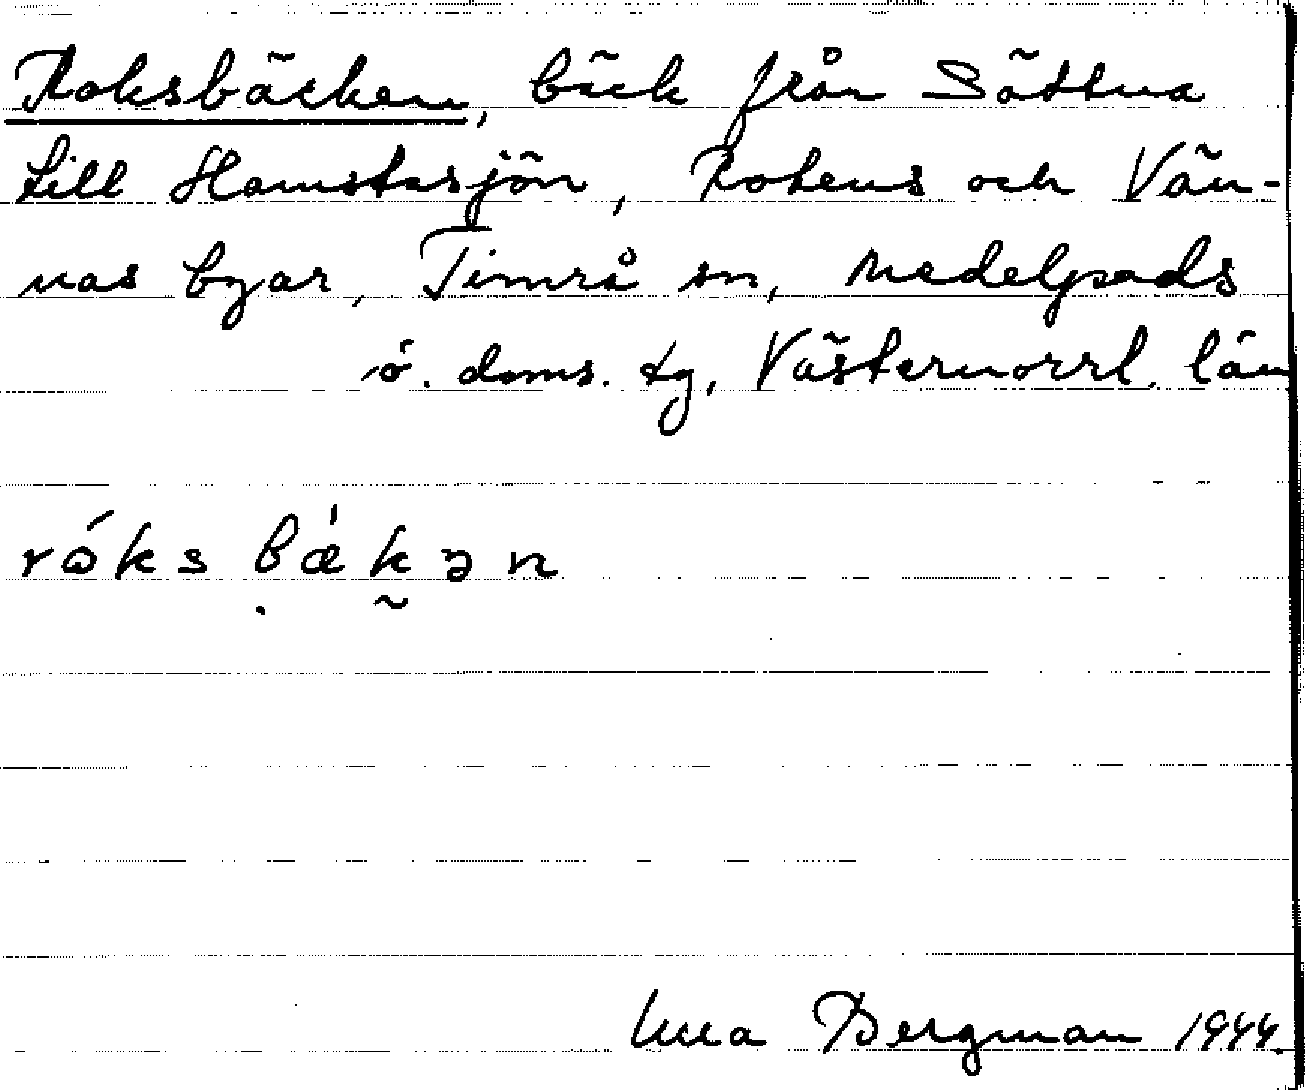 Roksbäcken, bäck från Sättna
till Hamstasjön, Rokens och Vän-
nas byar, Timrå sn, Medelpads
ö. doms. tg, Västernorrl. län
róks bǽkən
Una Bergman 1944.